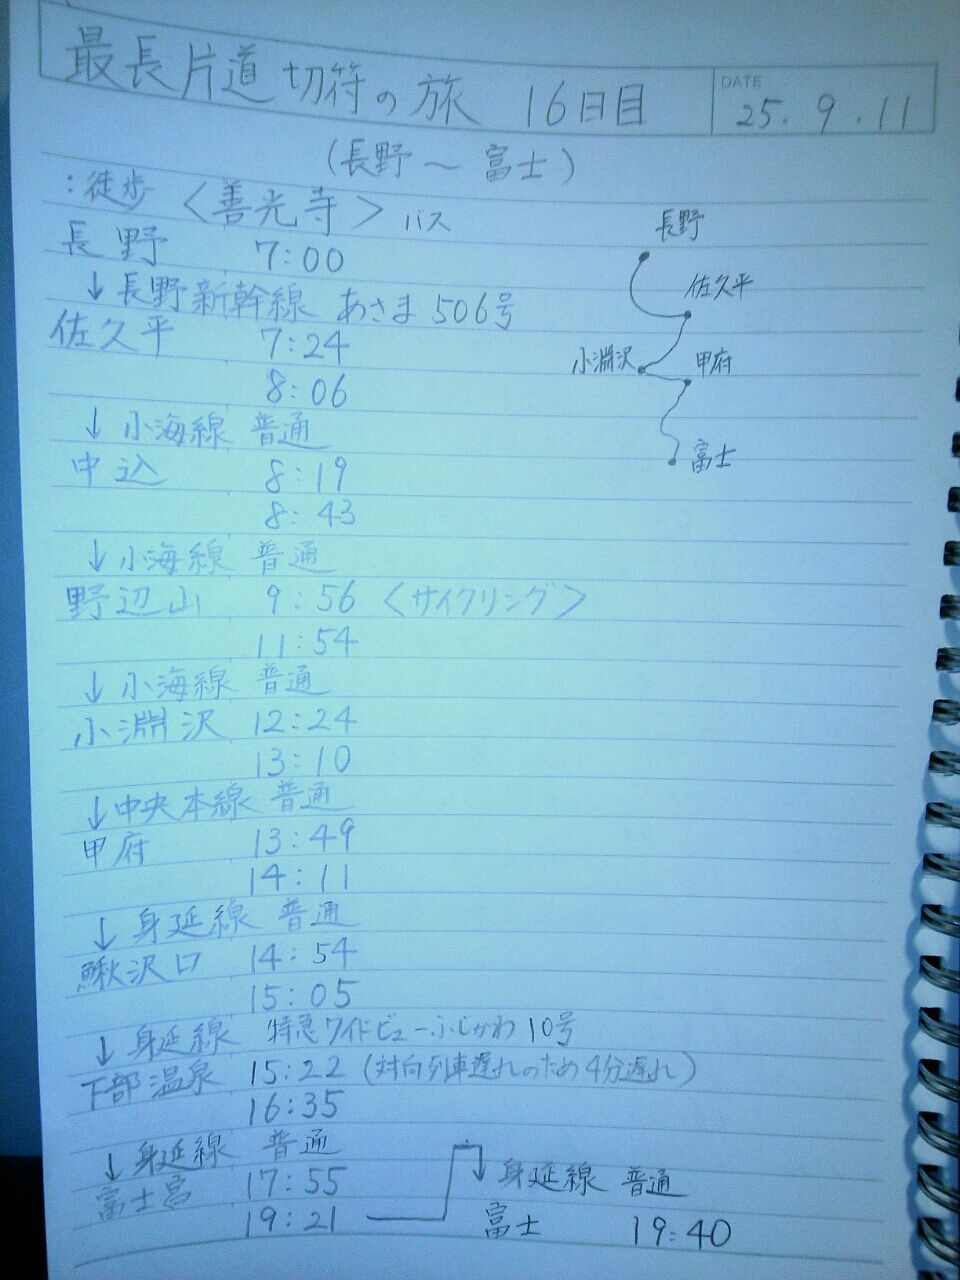 最長片道切符の旅 16日目
DATE
25.9.11
(長野〜富士)
:徒歩 〈善光寺〉 バス
長野 7:00
↓長野新幹線 あさま506号
佐久平 7:24
8:06
↓小海線 普通
中込 8:19
8:43
↓小海線 普通
野辺山 9:56 〈サイクリング〉
11:54
↓小海線 普通
小淵沢 12:24
13:10
↓中央本線 普通
甲府 13:49
14:11
↓身延線 普通
鰍沢口 14:54
15:05
↓身延線 特急ワイドビューふじかわ10号
下部温泉 15:22 (対向列車遅れのため4分遅れ)
16:35
↓身延線 普通
富士宮 17:55
19:21
↓身延線 普通
富士 19:40
長野
佐久平
小淵沢
甲府
富士